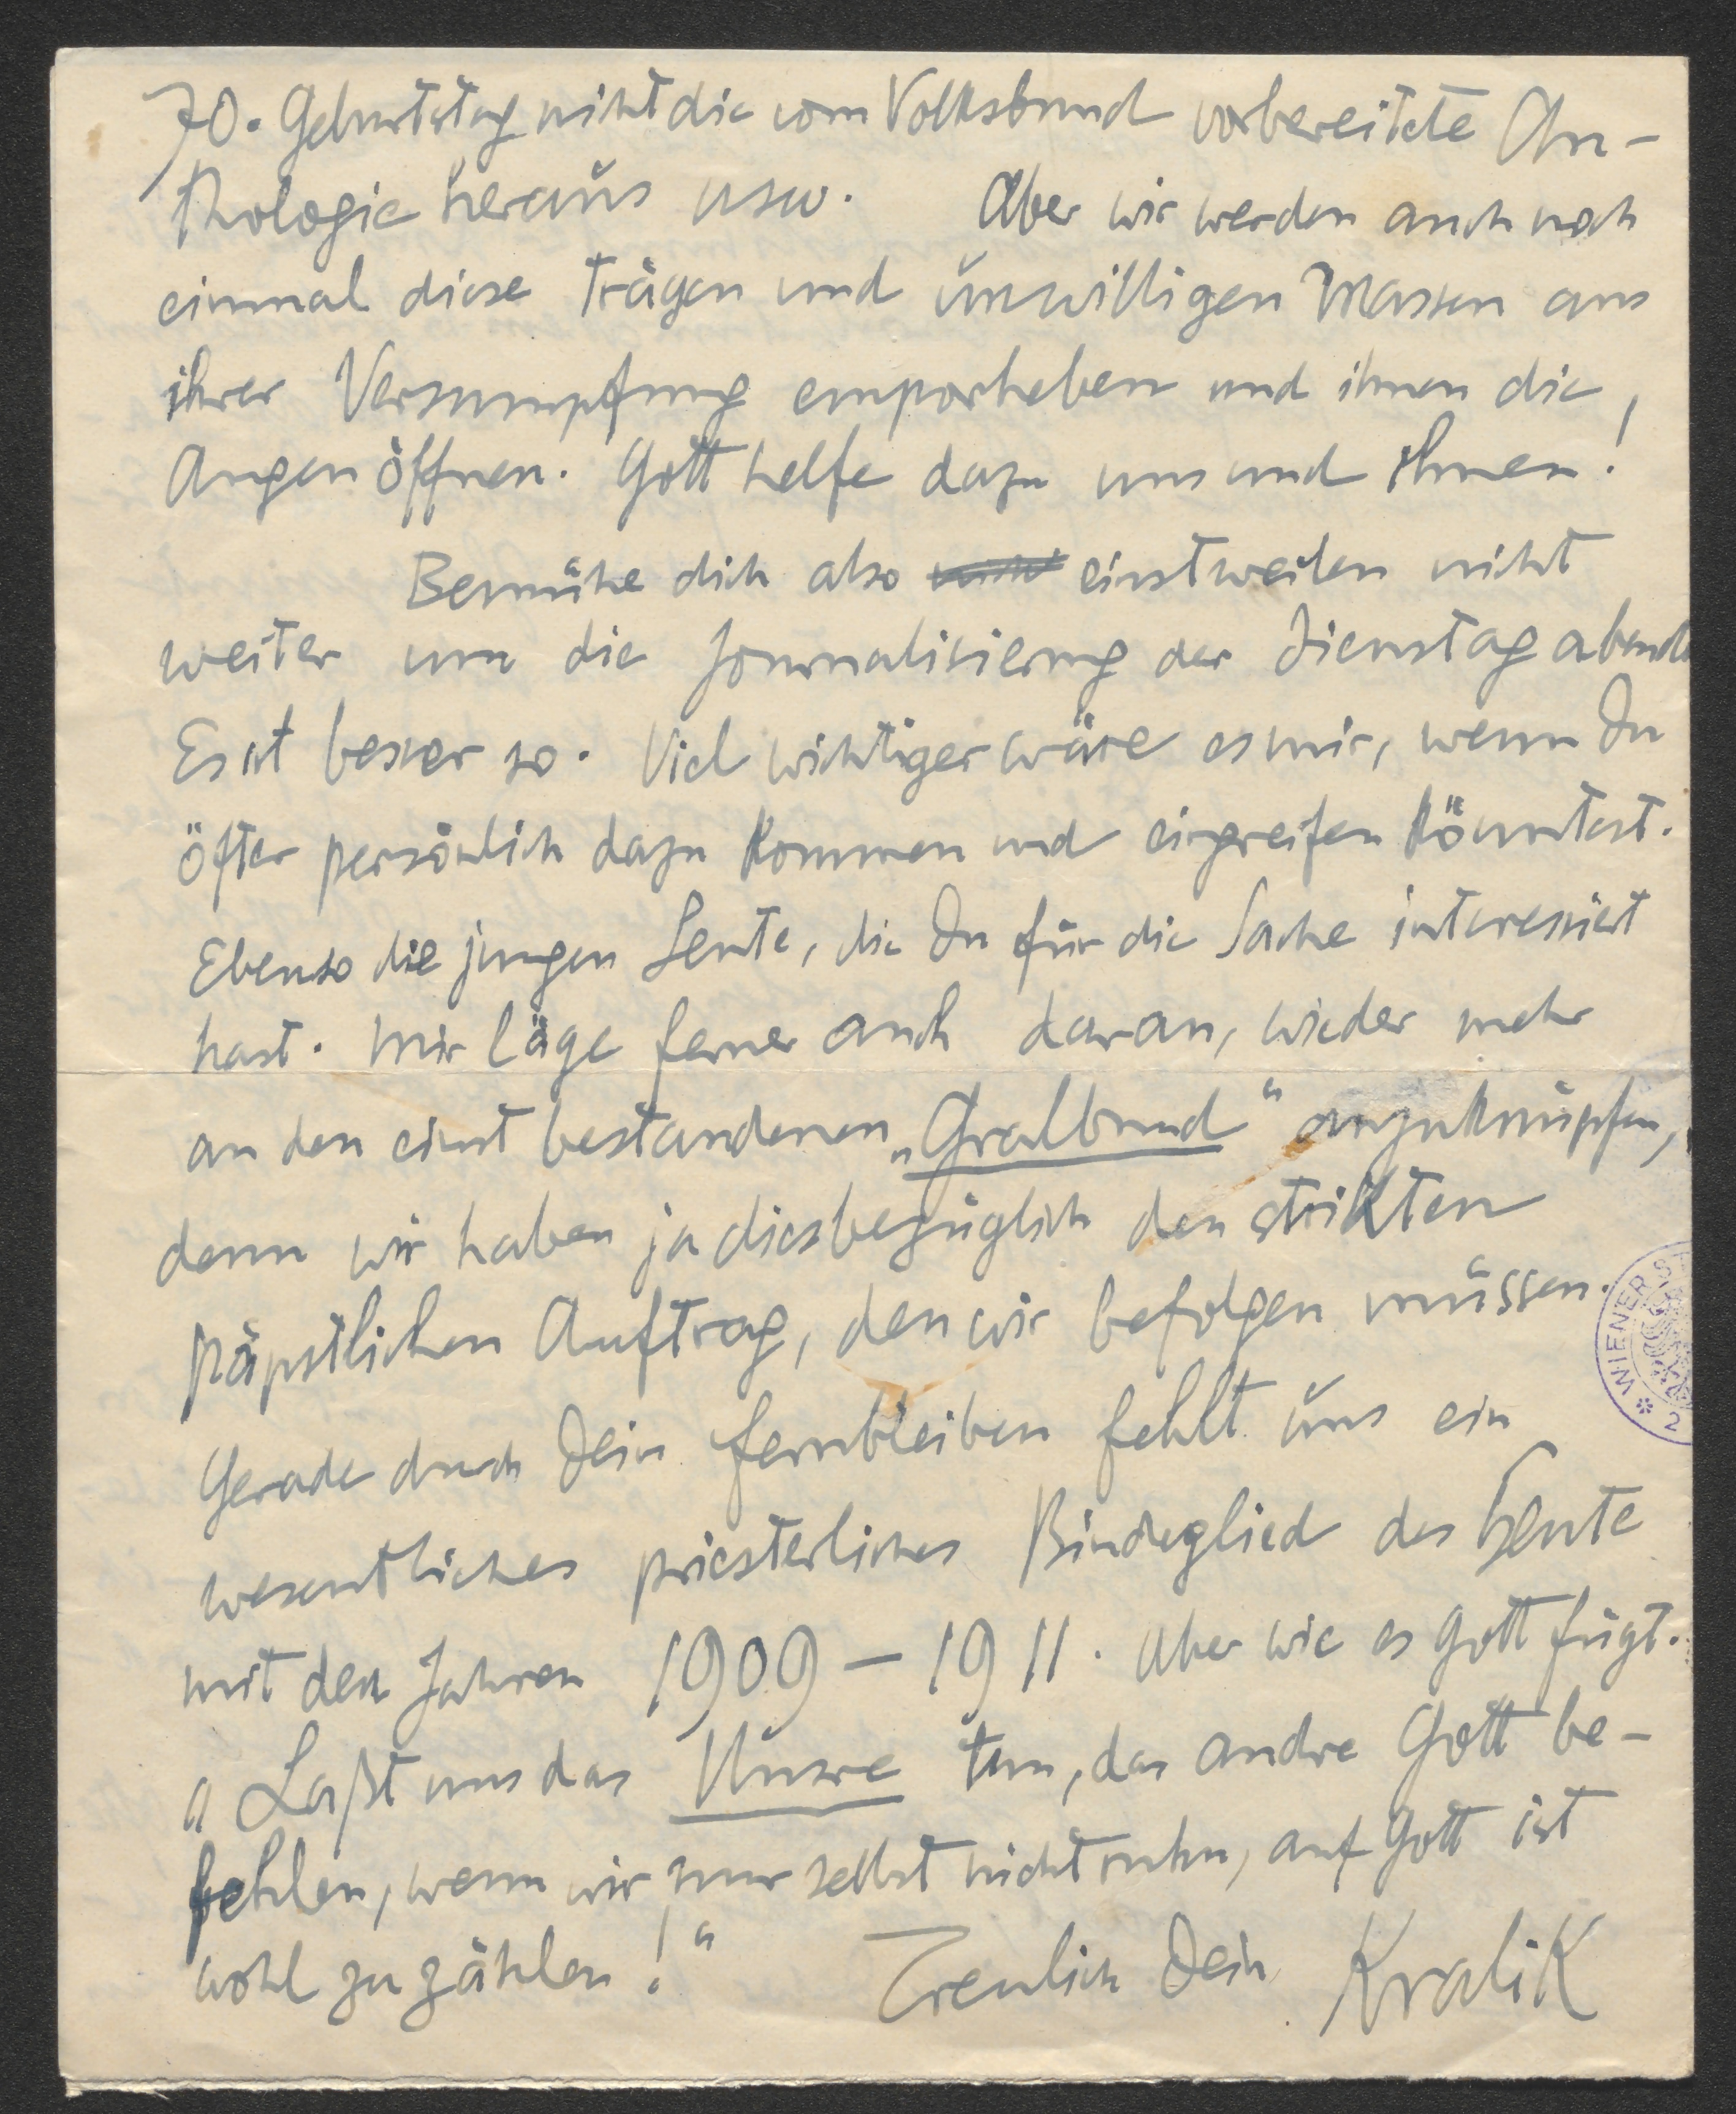 70. Geburtstag nicht die vom Volksbund vorbereitete An-
thologie heraus usw. Aber wir werden auch noch
einmal diese trägen und unwilligen Massen aus
ihrer Versumpfung emporheben und ihnen die
Augen öffnen. Gott helfe dazu uns und ihnen!
Bemühe dich also einstweilen nicht
weiter um die Journalisierung der Dienstag abende
Es ist besser so. Viel wichtiger wäre es mir, wenn Du
öfter persönlich dazu kommen und eingreifen könntest.
Ebenso die jungen Leute, die Du für die Sache interessiert
hast. Mir läge ferner auch daran, wieder mehr
an den einst bestandenen „Gralbund“ anzuknüpfen,
denn wir haben ja diesbezüglich den strikten
päpstlichen Auftrag, den wir befolgen müssen.
Gerade durch Dein fernbleiben fehlt uns ein
wesentliches priesterliches Bindeglied des Heute
mit den Jahren 1909 – 1911. Aber wie es Gott fügt.
„Laßt uns das Unsre tun, das andre Gott be-
fehlen, wenn wir nur selbst nicht ruhn, auf Gott ist
wohl zu zählen!“ Treulich Dein Kralik
WIENER S
2